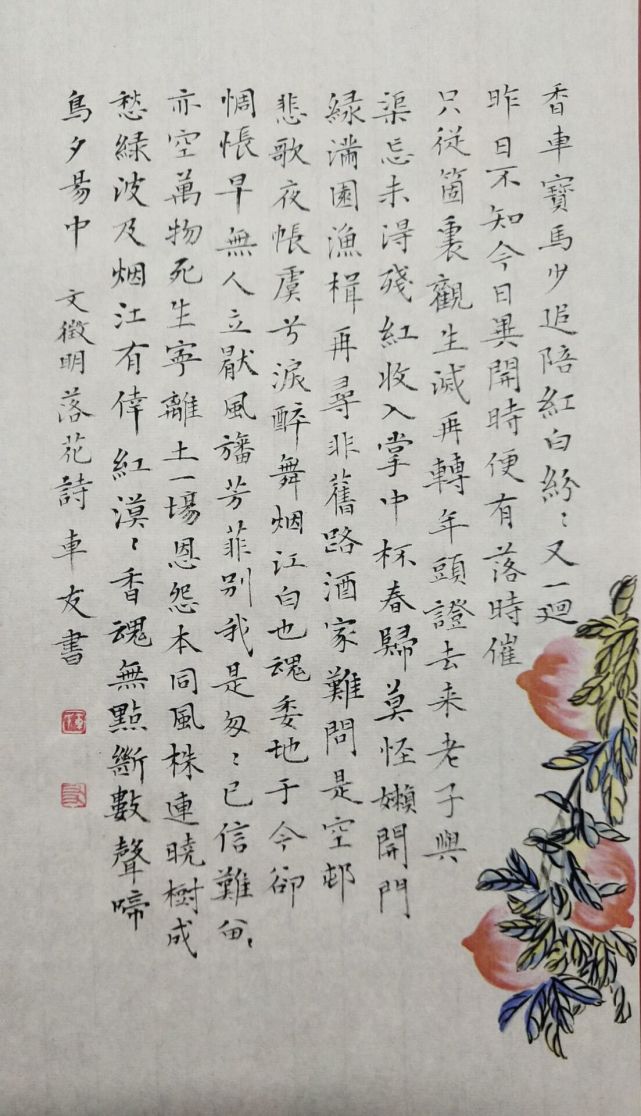 香車寶馬少追陪紅白紛〻又一迴
昨日不知今日異開時便有落時催
只從箇裏觀生滅再轉年頭證去来老子興
渠忘未得殘紅收入掌中杯春歸莫怪嬾開門
緑滿園漁楫再尋非舊路酒家難問是空邨
悲歌夜帳虞兮淚醉舞烟江白也魂委地于今卻
惆悵早無人立厭風旛芳菲别我是匆〻已信難留
亦空萬物死生寧離土一場恩怨本同風株連曉樹成
愁緑波及烟江有倖紅漠〻香魂無點斷數聲啼
鳥夕昜中 文徵明落花詩 車友書